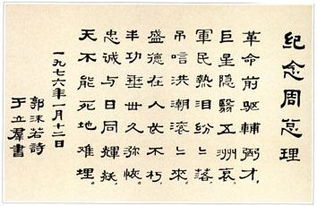 纪念周总理
革命前驱輔弼才，
巨星隐翳五洲哀。
軍民热泪纷々落，
吊唁洪潮滚々来。
盛德在人长不朽，
丰功垂世久弥恢。
忠诚与日同輝耀，
天不能死地难埋。
一九七六年一月十三日
郭沫若詩
于立羣書